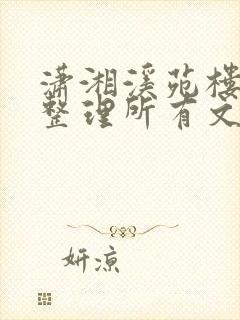 潇湘溪苑楼
整理所有文
妍凉